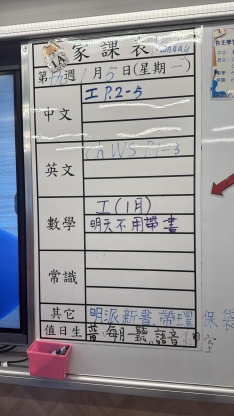 1A 家課表 Monday
第 十八 週 1 月 5 日(星期 一)
中文 工 P.2-5
英文 ch WS P.1-3
數學 工(1月)
明天不用帶書
常識
其它 明派新書 帶環保袋
值日生